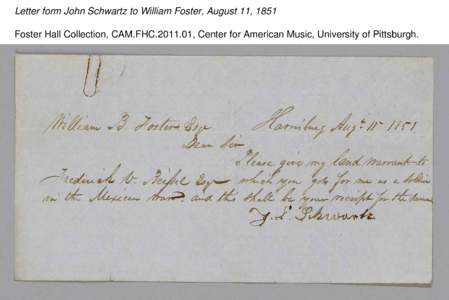 Letter form John Schwartz to William Foster, August 11, 1851
Foster Hall Collection, CAM.FHC.2011.01, Center for American Music, University of Pittsburgh.
William B. Foster Esqr Harrisburg Augt 11th 1851
Dear Sir
Please give my land warrant to
Frederick W. Esqr which you got for me as a soldier
in the Mexican war. and this shall be your receipt for the same
Schwartz